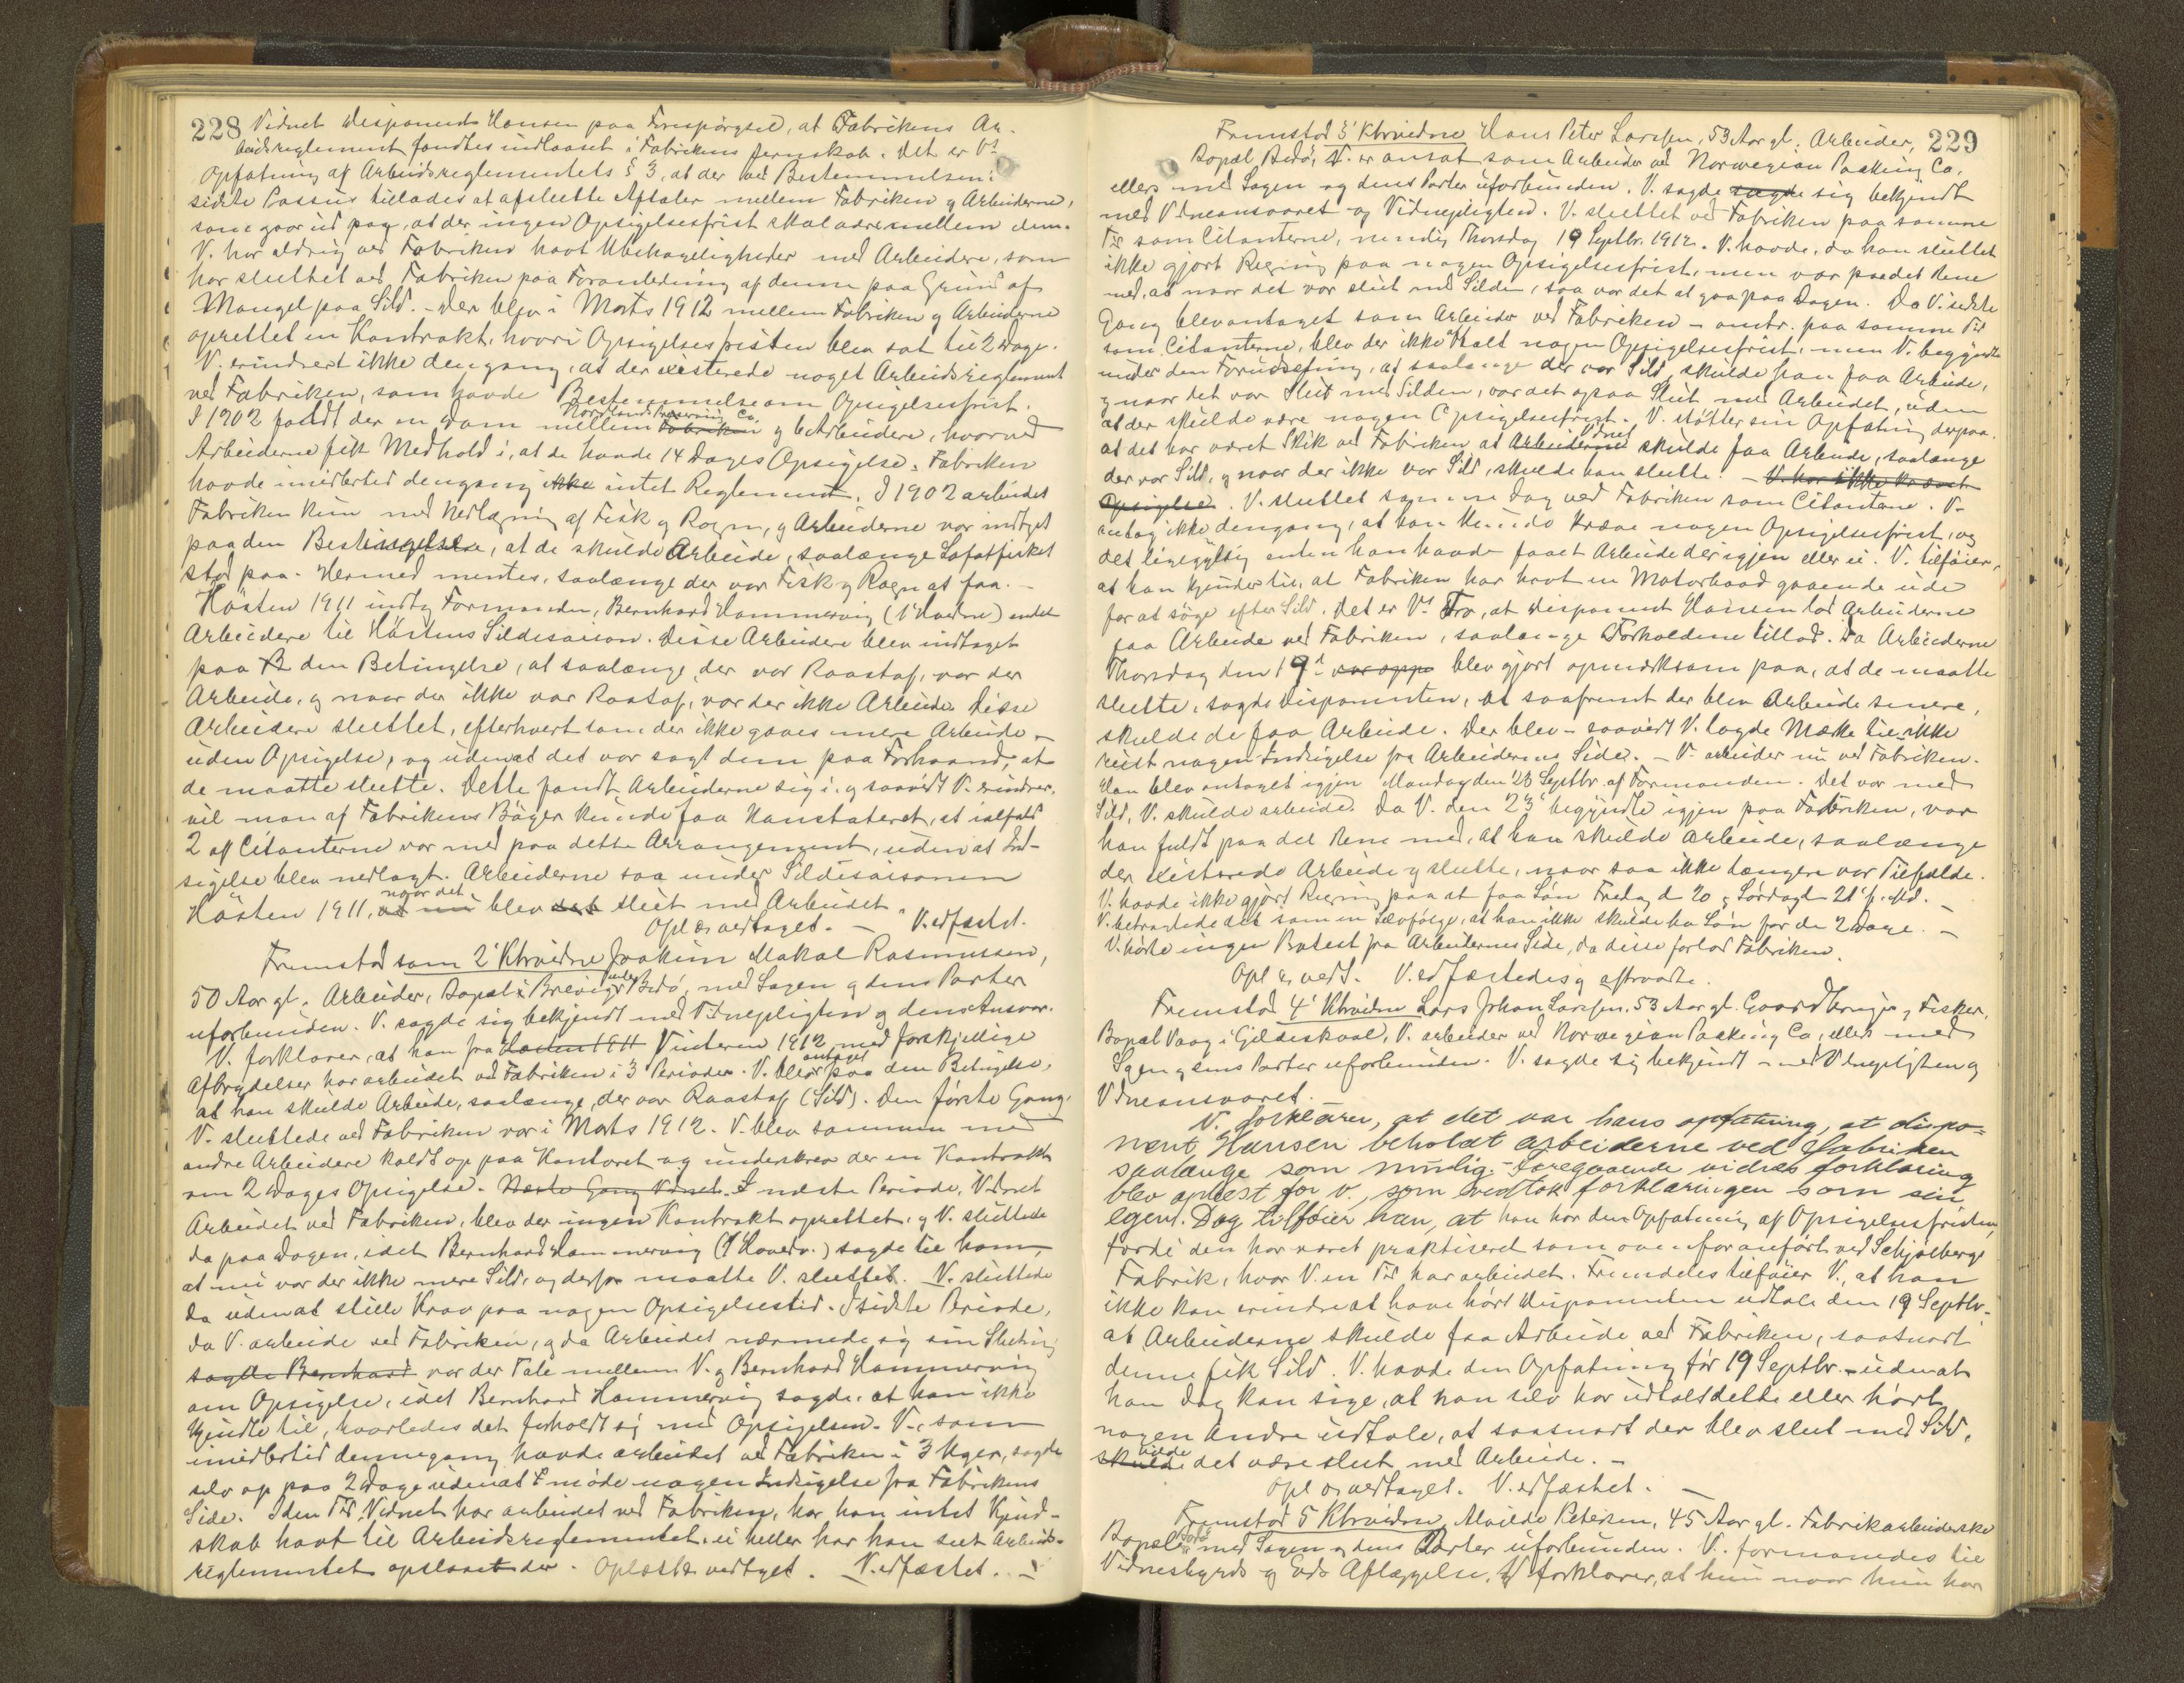 228 Vidnet Disponent Hansen paa Forespörgsel, at Fabrikens Ar-
beidsreglement fandtes indlaaset i Fabrikens Jernskab. Det er V's
Opfatning af Arbeidsreglementets § 3, at der ved Bestemmelsens
sidste Passus tillades at afslutte Aftaler mellem Fabriken og Arbeiderne,
som gaar ud paa, at der ingen Opsigelsesfrist skal være mellem dem.
V. har aldrig ved Fabriken havt Ubehageligheder med Arbeidere, som
har sluttet ved Fabriken paa Foranledning af denne paa Grund af
Mangel paa Sild. - Der blev i Marts 1912 mellem Fabriken og Arbeiderne
oprettet en Kontrakt, hvori Opsigelsesfristen blev sat til 2 Dage.
V. erindrert ikke dengang, at der existerede noget Arbeidsreglement
ved Fabriken, som havde Bestemmelse om Opsigelsesfrist.
I 1902 faldt der en Dom mellem Nordlands Preserving Co. Fabriken og 6 Arbeidere, hvorved
Arbeiderne fik Medhold i, at de havde 14 Dages Opsigelse. Fabriken
havde imidlertid dengang ikke intet Reglement. I 1902 arbeidet
Fabriken kun med Nedlægning af Fisk og Rogn, og Arbeiderne var indtaget
paa den Bestingelse, at de skulde Arbeide, saalænge Lofotfisket
stod paa. Hermed mentes, saalænge der var Fisk og Rogn at faa. -
Hösten 1911 indtog Formanden, Bernhard Hammervig (1' Hvidne) endel
Arbeidere til Höstens Sildesaison. Disse Arbeidere blev indtaget
paa B den Betingelse, at saalænge, der var Raastof, var der
Arbeide, og naar der ikke var Raastof, var der ikke Arbeide. Disse
Arbeidere sluttet, efterhvert som der ikke gaves mere Arbeide -
uden Opsigelse, og uden at det var sagt dem paa Forhaand, at
de maatte slutte. Dette fandt Arbeiderne sig i, og saavidt V. erindrer,
vil man af Fabrikens Böger kunde faa Konstateret, at ialfald
2 af Citanterne var med paa dette Arrangement, uden at Ind-
sigelse blev nedlagt. Arbeiderne saa under Sildesaisonen
Hösten 1911, naar det at nu blev det slut med Arbeidet.
Opl. og vedtaget. - V. edfæstet.
Fremstod som 2' Ktrvidne Joakim Makal Rasmussen,
50 Aar gl. Arbeider, Bopæl i Brevig under Bodö, med Sagen og dens Parter
uforbunden. V. sagde sig bekjendt med Vidnepligten og dens Ansvar.
V. forklarer, at han fra Hösten 1911 Vinteren 1912 med forskjellige
Afbrydelser har arbeidet ved Fabriken i 3 Perioder. V. blev antaget paa den Betingelse,
at han skulde Arbeide, saalænge, der var Raastof (Sild). Den förste Gang,
V. sluttede ved Fabriken var i Marts 1912. V. blev sammen med
andre Arbeidere kaldt op paa Kontoret og underskrev der en Kontrakt
om 2 Dages Opsigelse. Næste Gang Vidnet I næste Periode, Vidnet
Arbeidet ved Fabriken, blev der ingen Kontrakt oprettet, og V. sluttede
da paa Dagen, idet Bernhard Hammervig (1' Hovedv.) sagde til ham,
at nu var der ikke mere Sild, og derfor maatte V. slutte. V. sluttede
da uden at stille Krav paa nogen Opsigelsestid. I sidste Periode,
da V. arbeide ved Fabriken, og da Arbeidet nærmede sig sin Slutning
sagde Bernhard var der Tale mellem V. og Bernhard Hammervig
om Opsigelse, idet Bernhard Hammervig sagde, at han ikke
kjendte til, hvorledes det forholdt sig med Opsigelsen. V., som
imidlertid dennegang havde arbeidet ved Fabriken i 3 Uger, sagde
selv op paa 2 Dage uden at möde nogen Indsigelse fra Fabrikens
Side. I den Tid, Vidnet har arbeidet ved Fabriken, har han intet Kjend-
skab havt til Arbeidsreglementet, ei heller har han seet Arbeids-
reglementet opslaaet der. Oplæst & vedtaget. V. edfæstet. -
Fremstod 3' Ktrvidne Hans Peter Larssen, 53 Aar gl. Arbeider, 229
Bopæl Bodö, V. er ansat som Arbeider ved Norwegian Packing Co,
ellers med Sagen og dens Parter uforbunden. V. sagde sagde sig bekjendt
med Vidneansvaret og Vidnepligten. V. sluttet ved Fabriken paa samme
Tid som Citanterne, nemlig Thorsdag 19 Septbr. 1912. V. havde, da han sluttet
ikke gjort Regning paa nogen Opsigelsesfrist, men var paa det Rene
med, at naar det var slut med Silden, saa var det at gaa paa Dagen. Da V. sidste
Gang blev antaget som Arbeider ved Fabriken - omtr. paa samme Tid
som Citanterne, blev der ikke aftalt nogen Opsigelsesfrist, men V. begyndte
under den Forudsetning, at saalænge der var Sild, skulde han faa Arbeide,
og naar det var Slut med Silden, var det ogsaa Slut med Arbeidet, uden
at der skulde være nogen Opsigelsesfrist. V. stötter sin Opfatning derpaa,
at det har været Skik ved Fabriken at Arbeiderne Vidnet skulde faa Arbeide, saalænge
der var Sild, og naar der ikke var Sild, skulde han slutte. - V. har ikke krævet
Opsigelse. V. sluttet samme Dag ved Fabriken som Citanterne. V.
antog ikke dengang, at han kunde kræve nogen Opsigelsesfrist, og
det ligegyldig enten han havde faaet Arbeide der igjen eller ei. V. tilföier,
at han kjender til, at Fabriken har havt en Motorbaad gaaende ude
for at söge efter Sild. Det er V's Tro, at Disponent Hansen lod Arbeiderne
faa Arbeide ved Fabriken, saalænge Forholdene tillod. Da Arbeiderne
Thorsdag den 19' var oppe blev gjort opmærksom paa, at de maatte
slutte, sagde Disponenten, at saafremt der blev Arbeide senere,
skulde de faa Arbeide. Der blev - saavidt V. lagde Mærke til - ikke
reist nogen Indsigelse fra Arbeidernes Side. - V. arbeider nu ved Fabriken.
Han blev antaget igjen Mandag den 23 Septbr. af Formanden. Det var med
Sild, V. skulde arbeide. Da V. den 23' begyndte igjen paa Fabriken, var
han fuldt paa det Rene med, at han skulde arbeide, saalænge
der existerede Arbeide og slutte, naar saa ikke længere var Tilfælde.
V. havde ikke gjort Regning paa at faa Lön Fredag d 20 og Lördag d 21' s. Md. -
V. betragtede det som en Selvfölge, at han ikke skulde ha Lön for de 2 Dage. -
V. hörte ingen Protest fra Arbeidernes Side, da disse forlod Fabriken.
Opl. & vedt. V. edfæstedes og aftraadte.
Fremstod 4' Ktrvidne Lars Johan Larssen, 53 Aar gl. Gaardbruger og Fisker,
Bopæl Vaag i Gildeskaal, V. arbeider ved Norwegian Packing Co, ellers med
Sagen og dens Parter uforbunden. V. sagde sig bekjendt med Vidnepligten og
Vidneansvaret.
V. forklarer, at det var hans opfatning, at dispo=
nent Hansen beholdt arbeiderne ved fabriken
saalænge som mulig. - Foregaaende vidnes forklaring
blev oplæst for v., som vedtok forklaringen som sin
egen. Dog tilföier han, at han har den Opfatning af Opsigelsesfristen,
fordi den har været praktiseret som ovenfor anfört ved Schjölbergs
Fabrik, hvor V. en Tid har arbeidet. Fremdeles tilföier V., at han
ikke kan erindre at have hört Disponenten udtale den 19 Septbr.
at Arbeiderne skulde faa Arbeide ved Fabriken, saasnart
denne fik Sild. V. havde den Opfatning för 19 Septbr. - uden at
han dog kan sige, at han selv har udtalt dette eller hört
nogen Andre udtale, at saasnart der blev slut med Sild,
skulde vilde det være slut med Arbeide. -
Opl. og vedtaget. V. edfæstet. -
Fremstod 5 Ktrvidne, Alvilde Petersen, 45 Aar gl. Fabrikarbeiderske
Bopæl Bodö, med Sagen og dens Parter uforbunden. V. formanedes til
Vidnesbyrds og Eds Aflæggelse. V. forklarer, at hun naar hun har